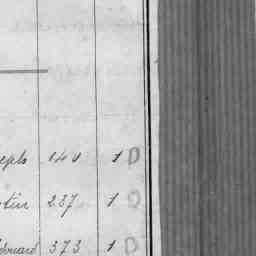 eph 141 1 D
tin 237 1 D
douard 373 1 D